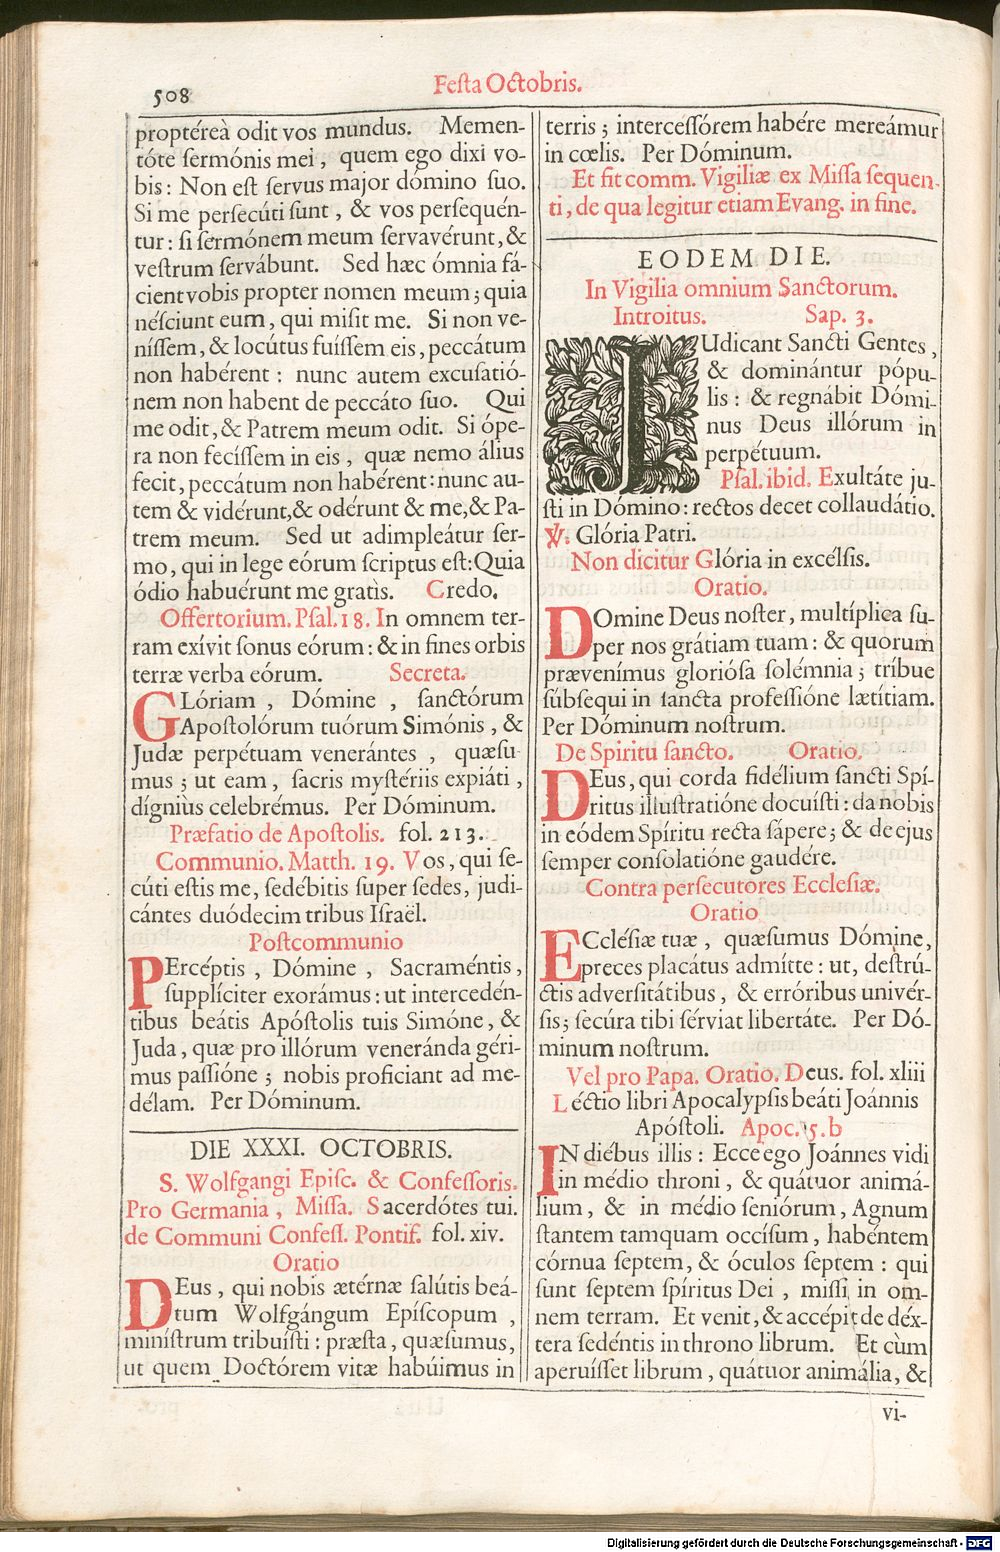 508
Festa Octobris.
proptéreà odit vos mundus. Memen-
tóte sermónis mei, quem ego dixi vo-
bis: Non est servus major dómino suo.
Si me persecúti sunt, & vos persequén-
tur: si sermónem meum servavérunt, &
vestrum servábunt. Sed hæc ómnia fá-
cient vobis propter nomen meum; quia
nésciunt eum, qui misit me. Si non ve-
níssem, & locútus fuissem eis, peccátum
non habérent: nunc autem excusatió-
nem non habent de peccáto suo. Qui
me odit, & Patrem meum odit. Si ópe-
ra non fecíssem in eis, quæ nemo álius
fecit, peccátum non habérent: nunc au-
tem & vidérunt, & odérunt & me, & Pa-
trem meum. Sed ut adimpleátur ser-
mo, qui in lege eórum scriptus est: Quia
ódio habuérunt me gratìs. Credo.
Offertorium. Psal. 18. In omnem ter-
ram exívit sonus eórum: & in fines orbis
terræ verba eórum. Secreta.
GLóriam, Dómine, sanctórum
Apostolórum tuórum Simónis, &
Judæ perpétuam venerántes, quæsu-
mus; ut eam, sacris mystériis expiáti,
dígniùs celebrémus. Per Dóminum.
Præfatio de Apostolis. fol. 213.
Communio. Matth. 19. Vos, qui se-
cúti estis me, sedébitis super sedes, judi-
cántes duódecim tribus Israël.
Postcommunio
PErcéptis, Dómine, Sacraméntis,
supplíciter exorámus: ut intercedén-
tibus beátis Apóstolis tuis Simóne, &
Juda, quæ pro illórum veneránda géri-
mus passióne; nobis proficiant ad me-
délam. Per Dóminum.
DIE XXXI. OCTOBRIS.
S. Wolfgangi Episc. & Confessoris.
Pro Germania, Missa. Sacerdótes tui.
de Communi Confess. Pontif. fol. xiv.
Oratio
DEus, qui nobis ætérnæ salútis beá-
tum Wolfgángum Epíscopum,
minístrum tribuísti: præsta, quæsumus,
ut quem Doctórem vitæ habúimus in
terris; intercessórem habére mereámur
in cœlis. Per Dóminum.
Et fit comm. Vigiliæ ex Missa sequen-
ti, de qua legitur etiam Evang. in fine.
EODEM DIE.
In Vigilia omnium Sanctorum.
Introitus. Sap. 3.
JUdicant Sancti Gentes,
& dominántur pópu-
lis: & regnábit Dómi-
nus Deus illórum in
perpétuum.
Psal. ibid. Exultáte ju-
sti in Dómino: rectos decet collaudátio.
℣. Glória Patri.
Non dicitur Glória in excélsis.
Oratio.
DOmine Deus noster, multíplica su-
per nos grátiam tuam: & quorum
prævenímus gloriósa solémnia; tríbue
súbsequi in sancta professióne lætítiam.
Per Dóminum nostrum.
De Spiritu sancto. Oratio.
DEus, qui corda fidélium sancti Spí-
ritus illustratióne docuísti: da nobis
in eódem Spíritu recta sápere; & de ejus
semper consolatióne gaudére.
Contra persecutores Ecclesiæ.
Oratio
ECclésiæ tuæ, quæsumus Dómine,
preces placátus admítte: ut, destrú-
ctis adversitátibus, & erróribus univér-
sis; secúra tibi sérviat libertáte. Per Dó-
minum nostrum.
Vel pro Papa. Oratio. Deus. fol. xliii
Léctio libri Apocalypsis beáti Joánnis
Apóstoli. Apoc. 5. b
IN diébus illis: Ecce ego Joánnes vidi
in médio throni, & quátuor animá-
lium, & in médio seniórum, Agnum
stantem tamquam occísum, habéntem
córnua septem, & óculos septem: qui
sunt septem spíritus Dei, missi in om-
nem terram. Et venit, & accépit de déx-
tera sedéntis in throno librum. Et cùm
aperuísset librum, quátuor animália, &
vi-
Digitalisierung gefördert durch die Deutsche Forschungsgemeinschaft - DFG